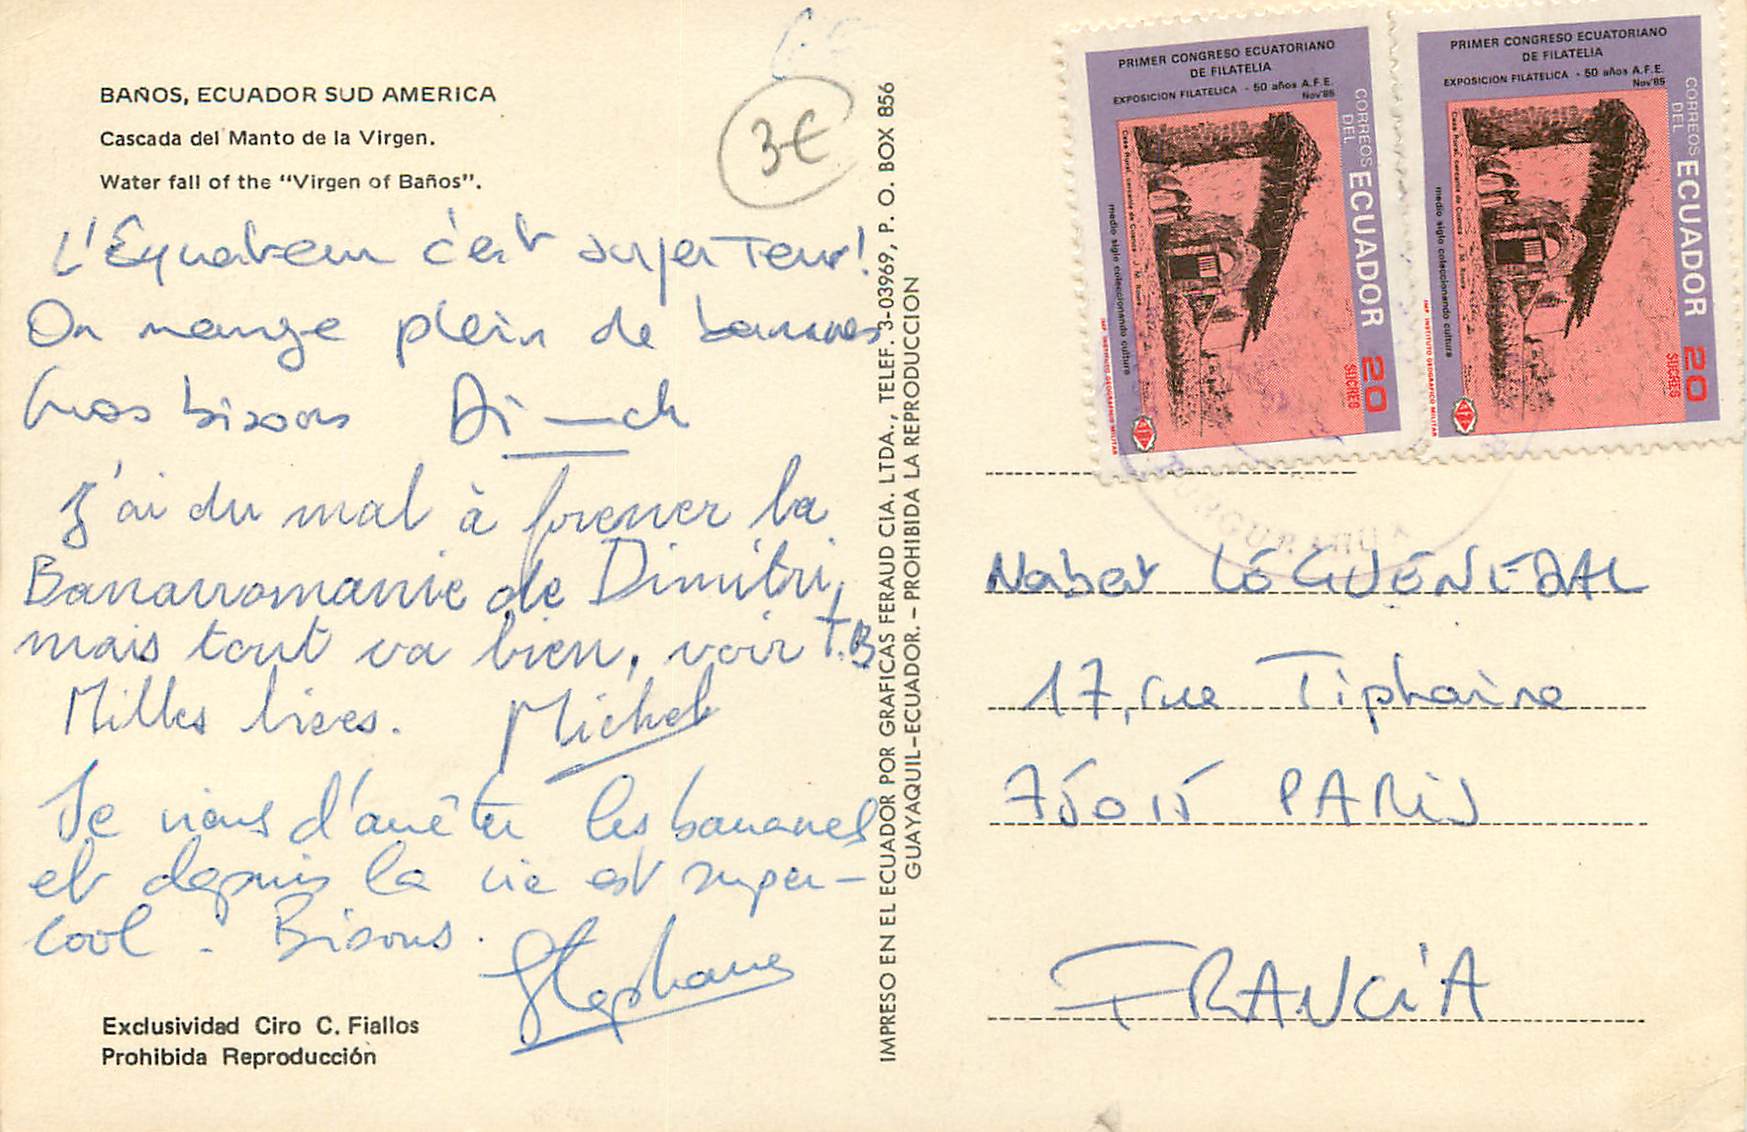 BAÑOS, ECUADOR SUD AMERICA
Cascada del Manto de la Virgen.
Water fall of the "Virgen of Baños".
3€
L'Equateur c'est super
On mange plein de bananes
Gros bisous
J'ai du mal à freiner la
Bananomanie de Dimitri,
mais tout va bien, voir T.B
Milles bises. Michel
Je viens d'arrêter les bananes
et depuis la vie est super-
cool. Bisous.
Stephane
Exclusividad Ciro C. Fiallos
Prohibida Reproducción
IMPRESO EN EL ECUADOR POR GRAFICAS FERAUD CIA. LTDA., TELEF. 3-03969, P. O. BOX 856
GUAYAQUIL-ECUADOR. - PROHIBIDA LA REPRODUCCION
PRIMER CONGRESO ECUATORIANO
DE FILATELIA
EXPOSICION FILATELICA - 50 años A.F.E.
Nov'85
CORREOS
DEL
ECUADOR
20
SUCRES
Casa Rural, cercanía de Cuenca
medio siglo coleccionando cultura
INSTITUTO GEOGRAFICO MILITAR
PRIMER CONGRESO ECUATORIANO
DE FILATELIA
EXPOSICION FILATELICA - 50 años A.F.E.
Nov'85
CORREOS
DEL
ECUADOR
20
SUCRES
Casa Rural, cercanía de Cuenca
medio siglo coleccionando cultura
IMP. INSTITUTO GEOGRAFICO MILITAR
17, rue Tiphaine
75015 PARIS
FRANCIA